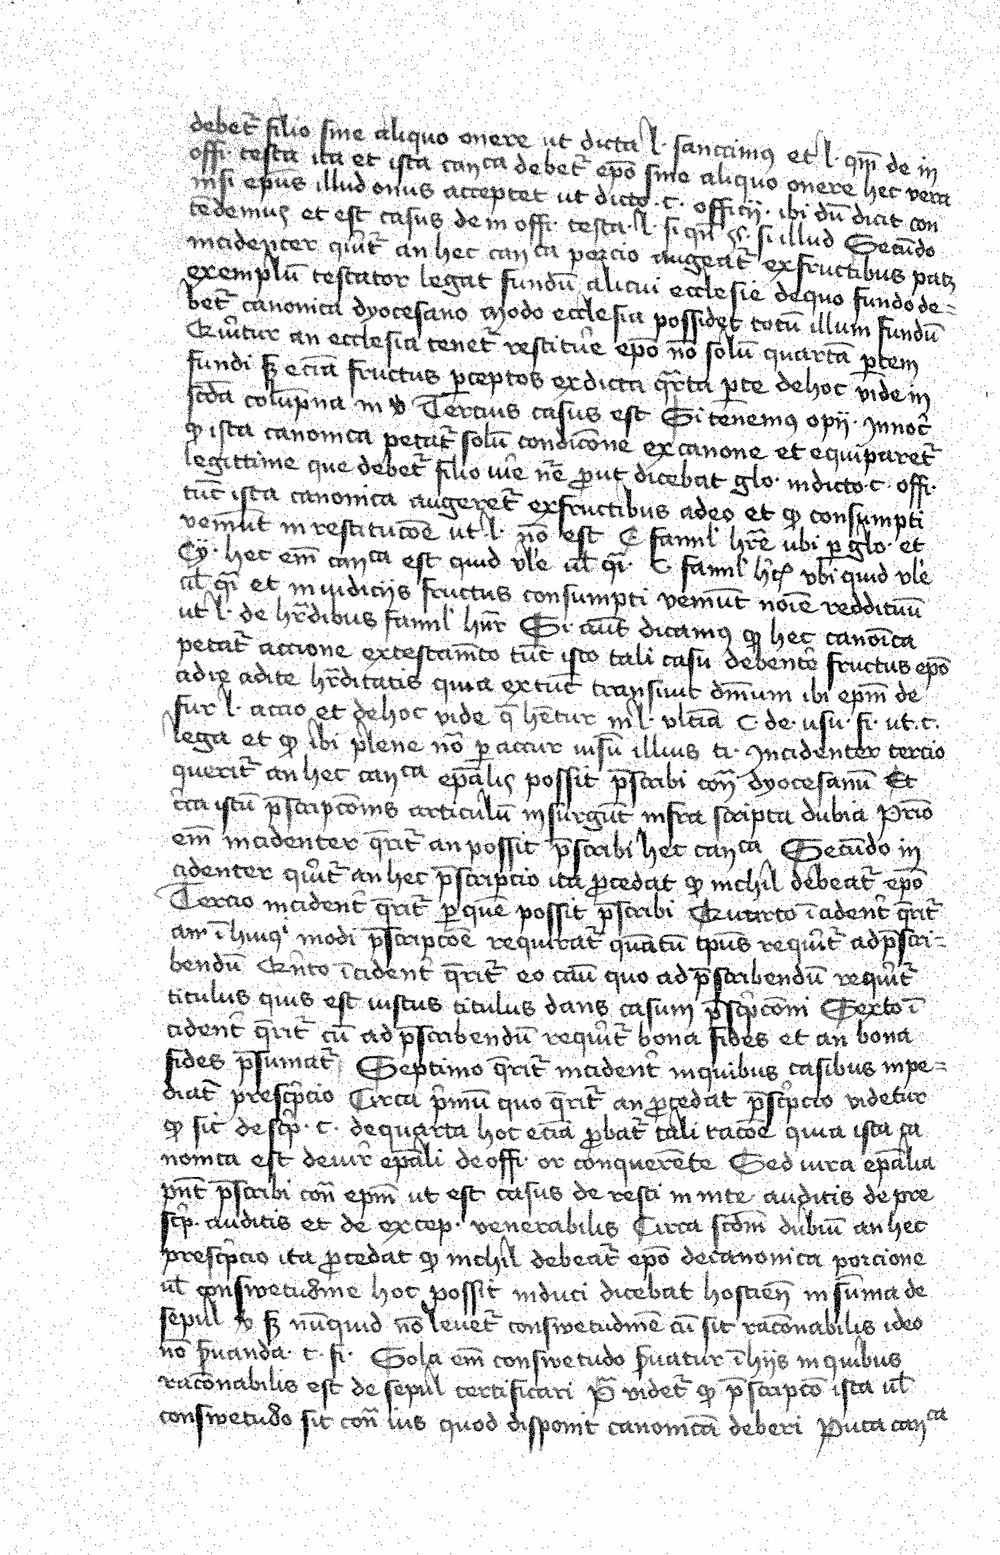 debet᷑ filio sine aliquo onere ut dicta l. sanccimꝰ et l. qm̅ de in
offi. testa ita et ista canca debet᷑ ep̅o sine aliquo onere hec vera
nisi ep̅us illud onus acceptet ut dicto. c. officij. ibi du̅ dicit con
te̅demus et est casus de in offi. testa. l. si qn̅ §. si illud Secu̅do
incidenter quir̅t᷑ an hec canca porcio augeat᷑ ex fructibus patꝫ
exemplu̅ testator legat fundu̅ alicui ecclesie de quo fundo de=
bet᷑ canonica dyocesano modo ecclesia possidet totu̅ illum fundu̅
Quir̅tur an ecclesia tenet᷑ restitu̅e ep̅o no̅ solu̅ quarta̅ ꝑtem
fundi sꝫ ecia̅ fructus ꝑceptos ex dicta qr̅ta ꝑte de hoc vide in
sc̅da colu̅pna in v Tercius casus est Si tenemꝰ opij. Innoc̅
ꝙ ista canonica petat᷑ solu̅ condico̅ne ex canone et equiparet᷑
legittime que debet᷑ filio iu̅e n̅re ꝓut dicebat glo. in dicto. c. offi.
tu̅c ista canonica augeret᷑ ex fructibus adeo et ꝙ consumpti
veniu̅t in restituco̅e ut. l. no̅ est C famil̅ hr̅e ubi ꝑ glo. et
Cy. hec em̅ canca est quid vl̅e ul̅ qi̅. C famil̅ ubi quid vl̅e
ul̅ qi̅ et in iudicijs fructus consumpti veniu̅t noi̅e reddituu̅
ut l. de hr̅dibus famil̅ hr̅ Si au̅t dicamꝰ ꝙ hec canoi̅ca
petat᷑ accione ex testam̅to tu̅c isto tali casu debent᷑ fructus ep̅o
a die adite hr̅ditatis quia ex tu̅c transiuit dm̅ium ibi ep̅m de
fur l. accio et de hoc vide q̅ he̅tur in l. vltia̅ C de. usu. fi. ut. c.
lega et ꝙ ibi plene no̅ ꝑ accur in su̅ illius ti. Incidenter tercio
querit᷑ an hec canca ep̅alis possit p̅scribi con̅ dyocesanu̅ Et
c̅ca istu̅ p̅scripco̅nis articulu̅ insurgu̅t infra scripta dubia Prio̅
em̅ incidenter q̅rit᷑ an possit p̅scribi hec canca Secu̅do in
cidenter quir̅t᷑ an hec p̅scripcio ita ꝓcedat ꝙ nichil debeat᷑ ep̅o
Tercio incident̅ q̅rit᷑ ꝑ que̅ possit p̅scribi Quarto i̅cident̅ q̅rit᷑
an i̅ huiꝰ modi p̅scripco̅e requirat᷑ quantu̅ tp̅us requir̅t᷑ ad p̅scri=
bendu̅ Qui̅to i̅cident̅ q̅rit᷑ eo casu̅ quo ad p̅scribendu̅ requir̅t᷑
titulus quis est iustus titulus dans casum p̅scpco̅ni Sexto i̅
cident̅ q̅rit᷑ cu̅ ad p̅scribendu̅ requir̅t᷑ bona fides et an bona
fides p̅sumat᷑ Septimo q̅rit᷑ incident̅ in quibus casibus inpe=
diat᷑ prescp̅cio Circa p̅mu̅ quo q̅rit᷑ an ꝓcedat p̅scp̅cio videtur
ꝙ sic de scp̅. c. de quarta hoc ecia̅ ꝓbat᷑ tali raco̅e quia ista ca
nonica est de iur̅ ep̅ali de offi. or conquere̅te Sed iura ep̅alia
pn̅t p̅scribi con̅ ep̅m ut est casus de resti in inte auditis de pre
scp̅. auditis et de excep. venerabilis Circa scd̅m dubiu̅ an hec
prescp̅cio ita ꝓcedat ꝙ nichil debeat᷑ ep̅o de canonica porcione
ul̅ conswetudine hoc possit induci dicebat hostien̅ in su̅ma de
sepul v sꝫ nu̅quid no̅ leuet᷑ conswetudine̅ cu̅ sit raco̅nabilis ideo
no̅ p̅uanda. c. fi. Sola em̅ conswetudo p̅uatur i̅ hijs in quibus
raco̅nabilis est de sepul certificari videt᷑ ꝙ p̅scripco̅ ista ul̅
conswetudo sit con̅ ius quod disponit canonica̅ deberi Puta canca